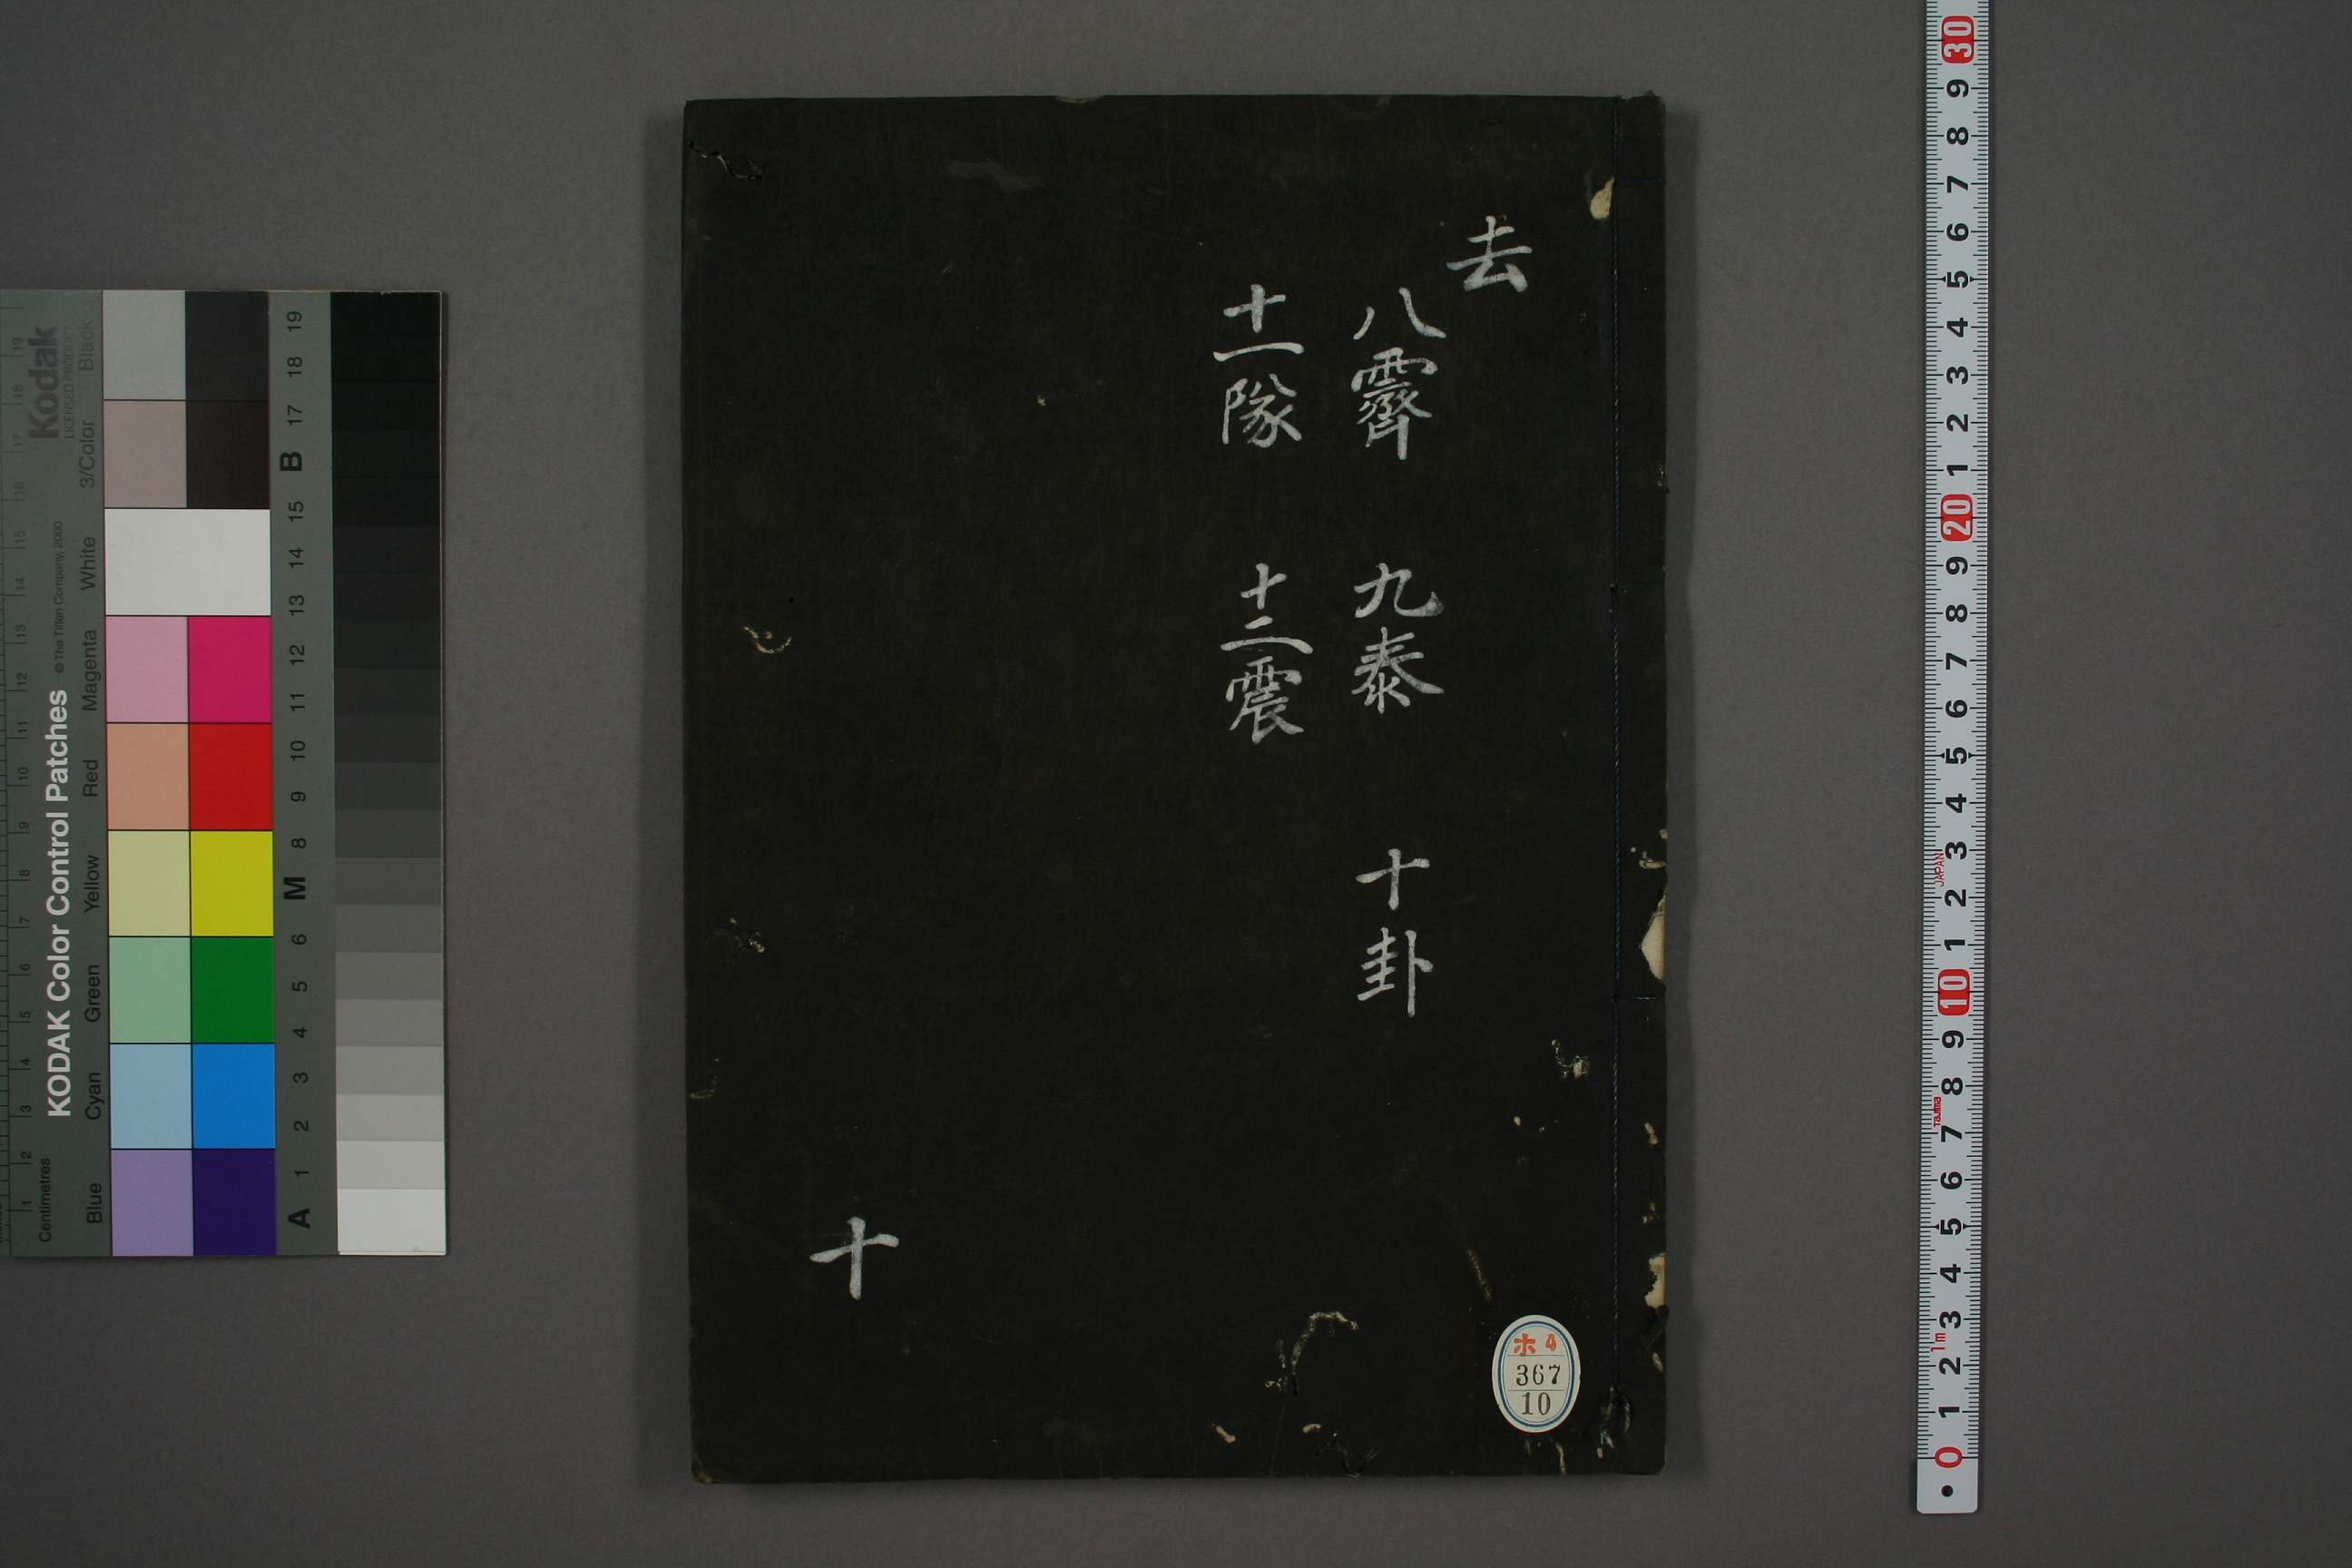 去
八霽　九泰　十卦
十一隊　十二震
十
ホ4
367
10
KODAK Color Control Patches
© The Tiffen Company, 2000
Kodak
LICENSED PRODUCT
Centimetres
Blue Cyan Green Yellow Red Magenta White 3/Color Black
A 1 2 3 4 5 6 M 8 9 10 11 12 13 14 15 B 17 18 19
30 9 8 7 6 5 4 3 2 1 20 9 8 7 6 5 4 3 2 1 10 9 8 7 6 5 4 3 2 1 0
JAPAN
Tajima
1m